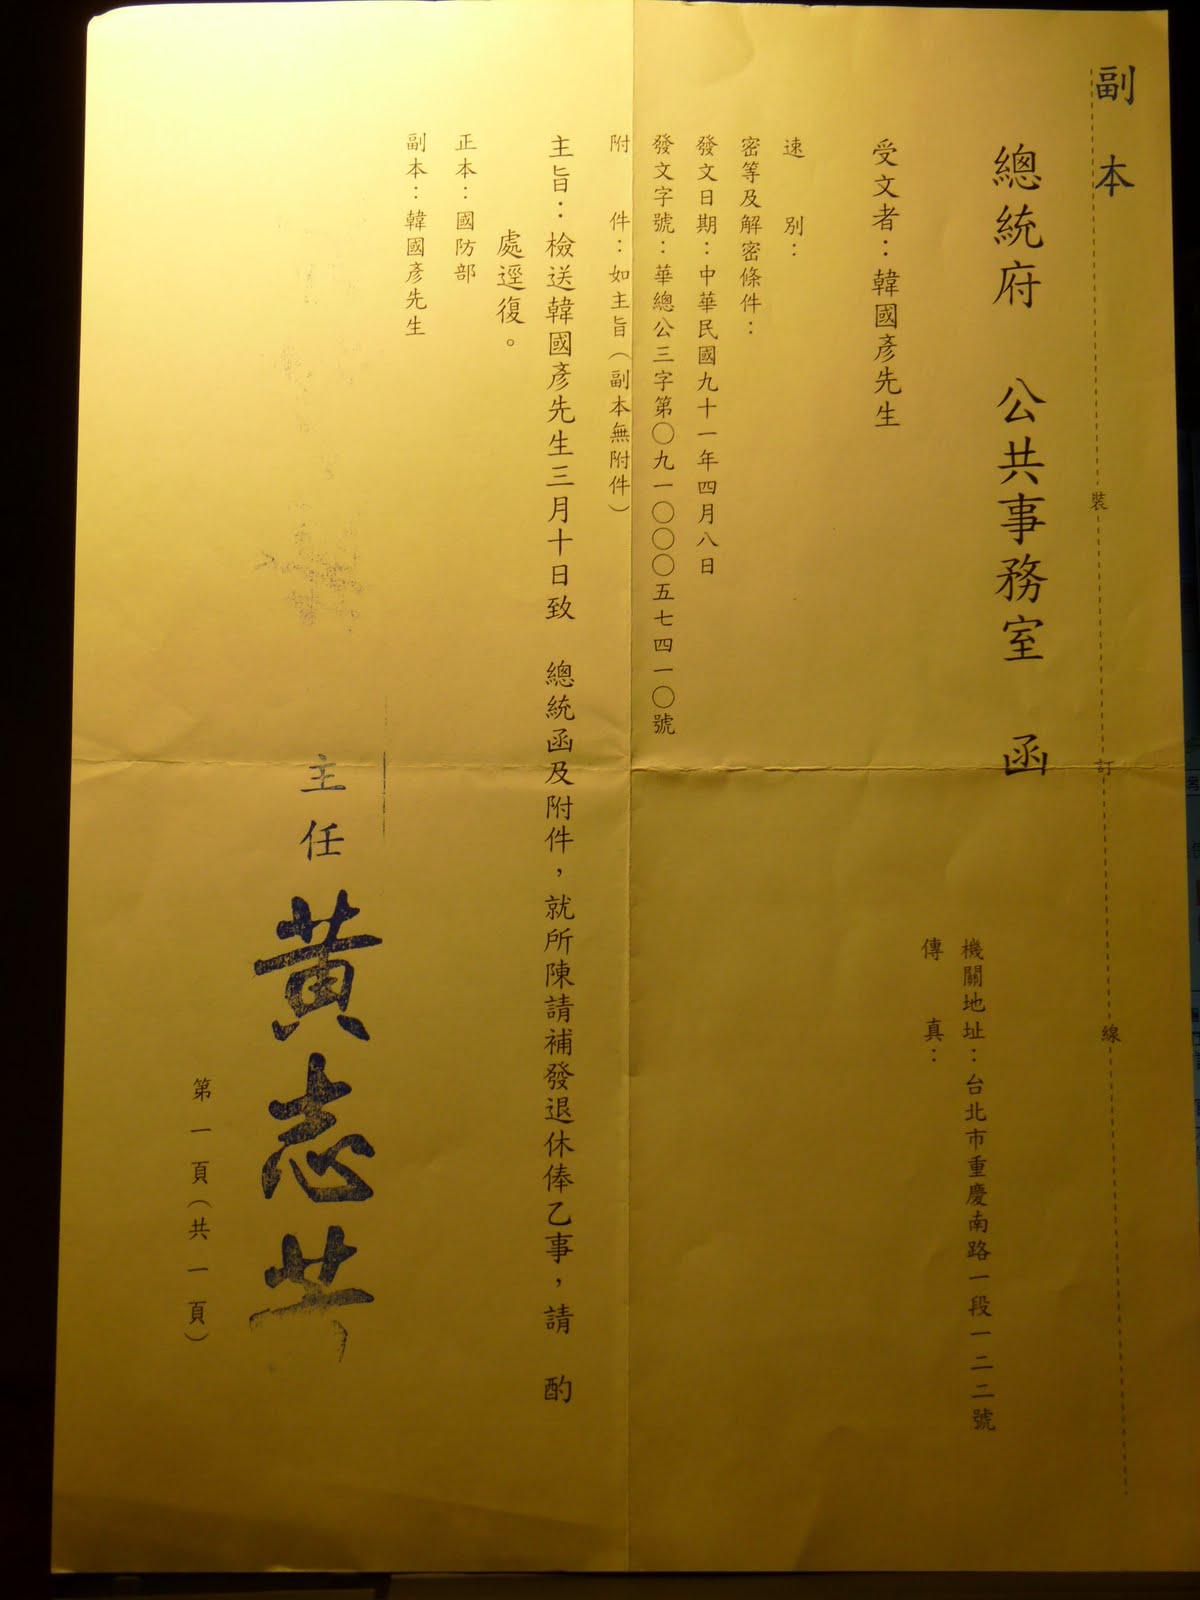 副本
裝訂線
總統府 公共事務室 函
機關地址：台北市重慶南路一段一二二號
傳真：
受文者：韓國彥先生
速別：
密等及解密條件：
發文日期：中華民國九十一年四月八日
發文字號：華總公三字第〇九一〇〇〇五七四一〇號
附件：如主旨（副本無附件）
主旨：檢送韓國彥先生三月十日致 總統函及附件，就所陳請補發退休俸乙事，請 酌
處逕復。
正本：國防部
副本：韓國彥先生
主任 黃志芳
第一頁（共一頁）